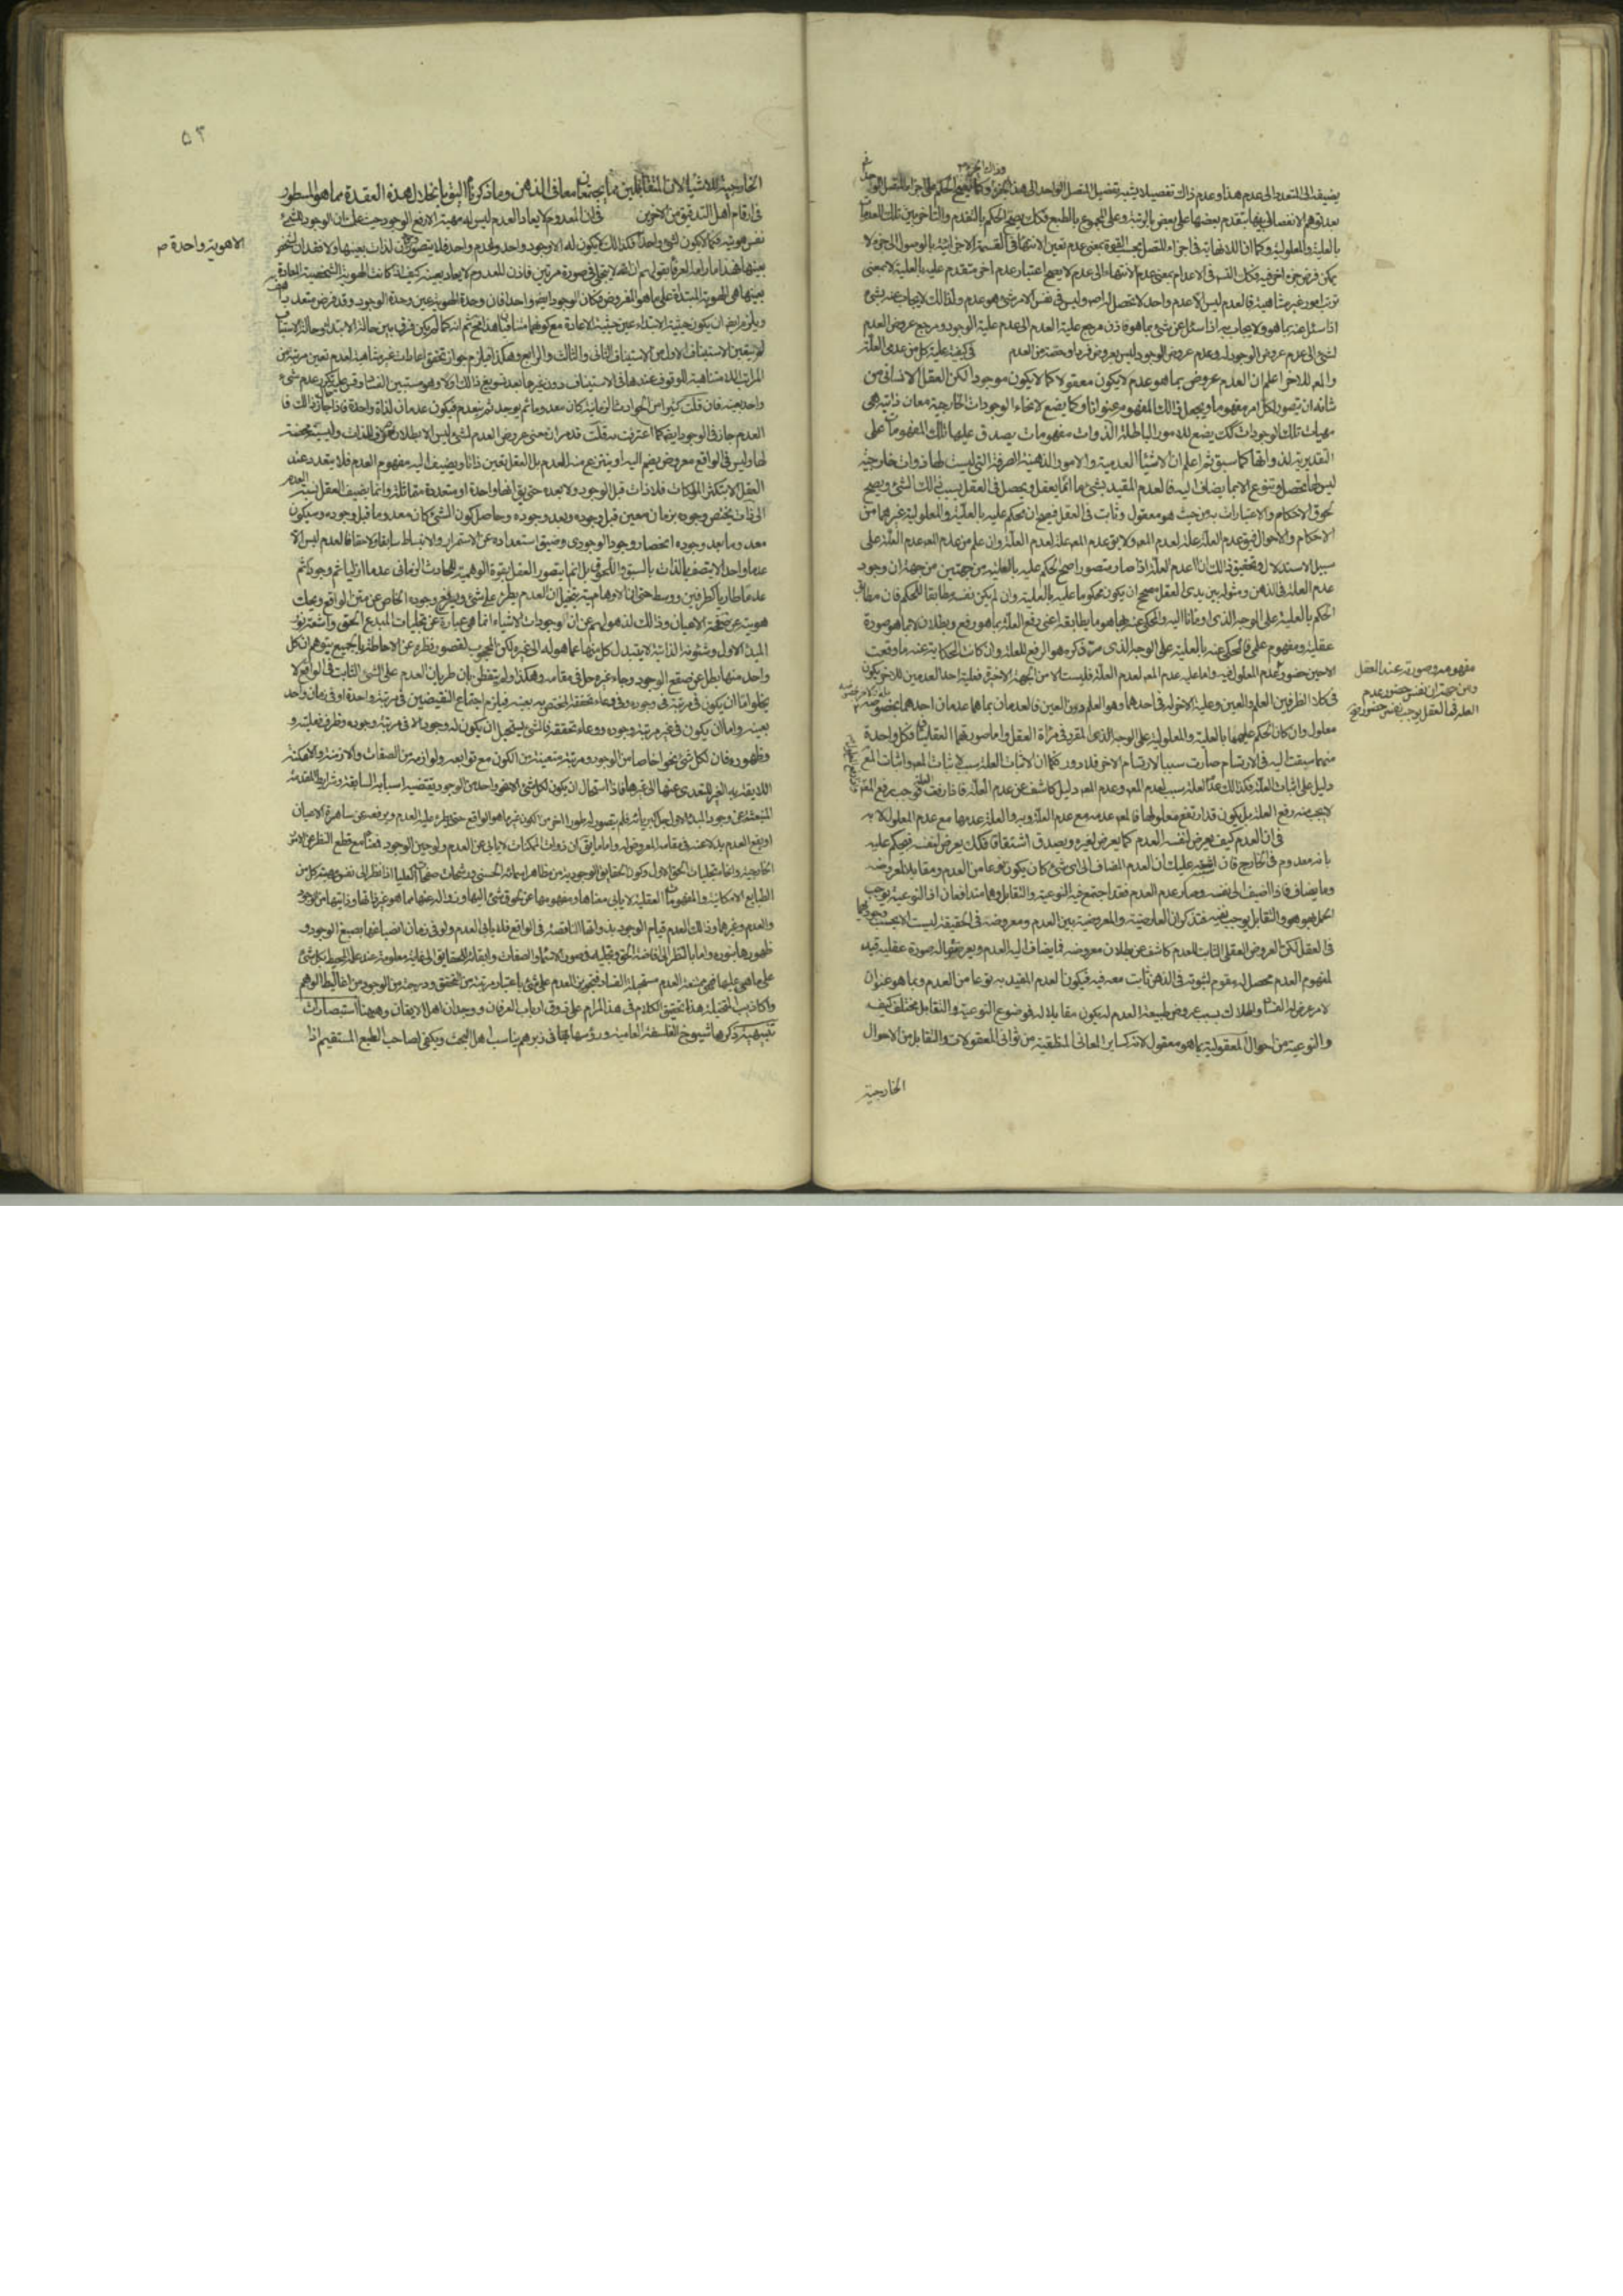 يضيفه الى المتعدد الى عدم هذا وعدم ذاك تفصيلا يشبه تفصيل المتصل الواحد الى هذا الجزء وذاك الجزء وكما يصح الحكم على اجزاء المتصل الواحد
بعد توهم الانفصال بينها بتقدم بعضها على بعض بالرتبة وعلى المجموع بالطبع فكذلك يصح الحكم بالتقدم والتأخر بين تلك العدمات
بالعلية والمعلولية وكما ان اللانهاية في اجزاء المتصل بحسب القوة بمعنى عدم تعين الانتهاء في القسمة الاجزائية بالوصول الى جزء لا
يمكن فرض جزء اخر فيه فكذلك التسلسل في الاعدام بمعنى عدم الانتهاء الى عدم لا يصح اعتبار عدم اخر متقدم عليه بالعلية لا بمعنى
ترتب امور غير متناهية فالعدم ليس الا عدم واحد لا تحصل له اصلا وليس في نفس الامر شيء هو عدم ولذلك لا يجاب عنه بشيء
اذا سئل عنه بما هو ولا يجاب به اذا سئل عن شيء بما هو فاذن مرجع علية العدم الى عدم علية الوجود ومرجع عروض العدم
لشيء الى عدم عروض الوجود له وعدم عروض الوجود ليس بعروض فرد او حصة من العدم في كيفية علية كل من عدمي العلة
والمعلول للاخر اعلم ان العدم بما هو عدم لا يكون معقولا كما لا يكون موجودا لكن العقل الانساني من
شانه ان يتصور لكل امر مفهوما ويجعل ذلك المفهوم عنوانا وكما يضع لانحاء الوجودات الخارجية معان ذاتية هي
مهيات تلك الوجودات كذلك يضع للامور الباطلة الذوات مفهومات يصدق عليها تلك المفهومات على
التقدير لذواتها كما سبق ثم اعلم ان الاشياء العدمية والامور الذهنية الصرفة التي ليست لها ذوات خارجية
ليس لها تحصل وتنوع الا بما يضاف اليه فالعدم المقيد بشيء ما انما يعقل ويحصل في العقل بسبب ذلك الشيء ويصح
لحوق الاحكام والاعتبارات به من حيث هو معقول وثابت في العقل فيصح ان يحكم عليه بالعلية والمعلولية وغيرهما من
الاحكام والاحوال فيق عدم العلة علة لعدم المعلول ولا يق عدم المعلول علة لعدم العلة وان علم من عدم المعلول عدم العلة على
سبيل الاستدلال وتحقيق ذلك ان عدم العلة اذا صار متصورا صح الحكم عليه بالعلية من جهتين من جهة ان وجود
عدم العلة في الذهن ومثوله بين يدي العقل مصحح ان يكون محكوما عليه بالعلية وان لم يكن نفسه مطابقا للحكم فان مطابق
الحكم بالعلية على الوجه الذي اومأنا اليه والمحكي عنه بها هو ما يطابقه اعني رفع العلة بما هو رفع وبطلان لا بما هو صورة
عقلية ومفهوم علمي فالمحكي عنه بالعلية على الوجه الذي مر ذكره هو الرفع للعلة وان كانت الحكاية عنه ما وقعت
الا حين حضور عدم المعلول فيه واما علية عدم المعلول لعدم العلة فليست الا من الجهة الاخيرة فعلية احد العدمين للاخر يكون
في كلا الطرفين العلم والعين وعلية الاخر له في احدهما وهو العلم دون العين فالعدمان بما هما عدمان احدهما بخصوصه
معلول وان كان الحكم عليهما بالعلية والمعلولية على الوجه الذي المقرر في مرآة العقل واما صورتهما العقليتان فكل واحدة
منهما سبقت اليه في الارتسام صارت سببا لارتسام الاخرى فلا دور فكما ان اثبات العلة سبب لاثبات المعلول واثبات المعلول
دليل على اثبات العلة فكذلك عدم العلة سبب لعدم المعلول وعدم المعلول دليل كاشف عن عدم العلة فاذا رفعت العلة وجب رفع المعلول
لا يجب منه رفع العلة بل يكون قد ارتفع معلولها فالمعلول عدمه مع عدم العلة وبه والعلة عدمها مع عدم المعلول لا به
في ان العدم كيف يعرض لنفسه العدم كما يعرض لغيره ويصدق اشتقاقا فكذلك يعرض لنفسه فيحكم عليه
بانه معدوم في الخارج فان اشتبه عليك ان العدم المضاف الى اي شيء كان يكون نوعا من العدم ومقابلا لمعروضه
وما يضاف فاذا اضيف الى نفسه وصار كعدم العدم فقد اجتمع فيه النوعية والتقابل وهما متدافعان اذ النوعية يوجب
الحمل بهو هو والتقابل يوجب نفيه فتذكر ان العارضية والمعروضية بين العدم ومعروضه في الحقيقة ليست الا بحسب وجودهما
في العقل لكن العروض العقلي الثابت للعدم كاشف عن بطلان معروضه فما يضاف اليه العدم ويعرض له صورة عقلية قيد
لمفهوم العدم محصل له ومقوم لثبوته في الذهن ثابت معه فيه فيكون العدم المقيد به نوعا من العدم وبما هو عنوان
لامر عرض له الفساد والهلاك بسبب عروض طبيعة العدم له يكون مقابلا له فموضوع النوعية والتقابل مختلف كيف
والنوعية من احوال المعقولية بما هو معقول لانه كسائر المعاني المنطقية من ثواني المعقولات والتقابل من الاحوال
الخارجية
مفهومه وصورته عند العقل
ومن جهة ان نفس حضور عدم
العلة في العقل يوجب نفس حضور
٥٣
الخارجية للاشياء لان المتقابلين مما يجتمعان معا في الذهن وما ذكرناه اليق بانحلال هذه العقدة مما هو المسطور
في ارقام اهل التدقيق من الاخرين في ان المعدوم لا يعاد العدم ليس له مهية الا رفع الوجود وحيث علمت ان الوجود للشيء
نفس هويته فكما لا يكون لشيء واحد فكذلك لا يكون له الا وجود واحد وعدم واحد فلا يتصور وجودان لذات بعينها ولا فقدان لشخص
بعينه فهذا ما رامه العرفا بقولهم ان الله لا يتجلى في صورة مرتين فاذن المعدوم لا يعاد بعينه كيف واذ كانت الهوية الشخصية المعادة
بعينها هي الهوية المبتدأة على ما هو المفروض فكان الوجود ايضا واحدا فان وحدة الهوية عين وحدة الوجود وقد فرض متعددا هف
ويلزم ايضا ان يكون حيثية الابتداء عين حيثية الاعادة مع كونهما متنافيين هذا محال ثم انه كما لم يكن فرق بين حالة الابتداء وحالة الاستيناف
لم يتعين الاستيناف الاول من الاستيناف الثاني والثالث والرابع وهكذا فيلزم جواز تحقق اعادات غير متناهية لعدم تعين مرتبة من
المراتب اللامتناهية للوقوف عندها في الاستيناف دون غيرها بعد تسويغ ذلك اولا وهو مستبين الفساد وقس عليه تكرر عدم شيء
واحد بعينه فان قلت كثير من الحوادث الزمانية كان معدوما ثم يوجد ثم ينعدم فيكون عدمان لذات واحدة فاذا جاز ذلك في
العدم جاز في الوجود ايضا كما اعترفت به قلت قد مر ان معنى عروض العدم لشيء ليس الا بطلان صرف للذات وليسية محضة
لها وليس في الواقع معروض يضم اليه او ينتزع منه العدم بل العقل يعين ذاتا ويضيف اليه مفهوم العدم فلا يتعدد عند
العقل الا بتكثر الملكات فلا ذات قبل الوجود ولا بعده حتى يق انها واحدة او متعددة متماثلة وانما يضيف العقل نسبة العدم
الى ذات يختص وجوده بزمان معين قبل وجوده وبعد وجوده وحاصل كون الشيء كان معدوما قبل وجوده وسيكون
معدوما بعد وجوده انحصار وجود الوجودي وضيق استعداده عن الاستمرار والانبساط سابقا ولاحقا فالعدم ليس الا
عدما واحدا لا يتصف بالذات بالسبق واللحوق بل انما يتصور العقل بقوة الوهمية للحادث الزماني عدما ازليا ثم وجود ثم
عدما طاريا كطرفين ووسط حتى ان الاوهام يتخيل ان العدم يطرء على شيء ويرفع وجوده الخاص عن متن الواقع ويحك
هويته عن صفحة الاعيان وذلك لذهولهم عن ان وجودات الاشياء انما هي عبارة عن تجليات المبدع الحق واشعة نور
المبدء الاول وشئونه الذاتية لا يتبدل كل منها عما هو له الى غيره ولكن المحجوب لقصور نظره عن الاحاطة بالجميع يتوهم ان كل
واحد منها بطل عن صقع الوجود وجاء غيره حل في مقامه وهكذا ولم يتفطن بان طريان العدم على الشيء الثابت في الواقع لا
يخلو اما ان يكون في مرتبة وجوده وفي وعاء تحققه المختص به بعينه فيلزم اجتماع النقيضين في مرتبة واحدة او في زمان واحد
بعينه واما ان يكون في غير مرتبة وجوده ووعاء تحققه فالشيء يستحيل ان يكون له وجود الا في مرتبة وجوده وظرف فعليته و
ظهوره فان لكل شيء نحوا خاصا من الوجود ومرتبة متعينة من الكون مع توابعه ولوازمه من الصفات والازمنة والامكنة
اللايقة به الغير المتعدي عنها الى غيرها فاذا استحال ان يكون لكل شيء الا نحو واحد من الوجود يقتضيه اسبابه السابقة وشرايطه المتقدمة
المنبعثة عن وجود المبدء الاول جل كبريائه فلم يتصور له طور اخر من الكون غير ما هو الواقع حتى يطرء عليه العدم ويرفعه عن ساهرة الاعيان
او يقع العدم بدلا عنه في مقامه المعروض له واما ما يق ان ذوات الممكنات لا يابى عن العدم ولو حين الوجود فمعناه مع قطع النظر عن الامور
الخارجية وانها تجليات الحق الاول وكون الحقايق الوجودية من مظاهر اسمائه الحسنى ورشحات صفاته العليا اذا نظر الى نفس مهية كل من
الطبايع الامكانية والمفهومات العقلية لا يابى معناها ومفهومها عن لحوق شيء اليها او زواله عنها مما هو غير ذاتها وذاتياتها من الوجود
والعدم وغيرهما وذلك لعدم قيام الوجود بذواتها الناقصة في الواقع فلا يابى العدم ولو في زمان انصباغها بصبغ الوجود و
ظهورها بنوره واما بالنظر الى افاضة الحق وتجليه في صور الاسماء والصفات وابقائه للحقايق الى غاية معلومة عند علمه المحيط بكل شيء
على ما هي عليها فهي ممتنعة العدم مستحيلة الفساد فتجويز العدم على شيء باعتبار مرتبة من التحقق ودرجة من الوجود من اغاليط الوهم
واكاذيب المتخيلة هذا تحقيق الكلام في هذا المرام على ذوق ارباب العرفان ووجدان اهل الايقان وههنا استبصارات
تنبيهية ذكرها شيوخ الفلسفة العامية ورؤسائها في زبرهم يناسب اهل البحث ويكفي لصاحب الطبع المستقيم اذا
الا هوية واحدة ص